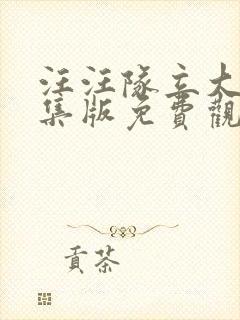 汪汪隊立大
集版免費觀
貢茶